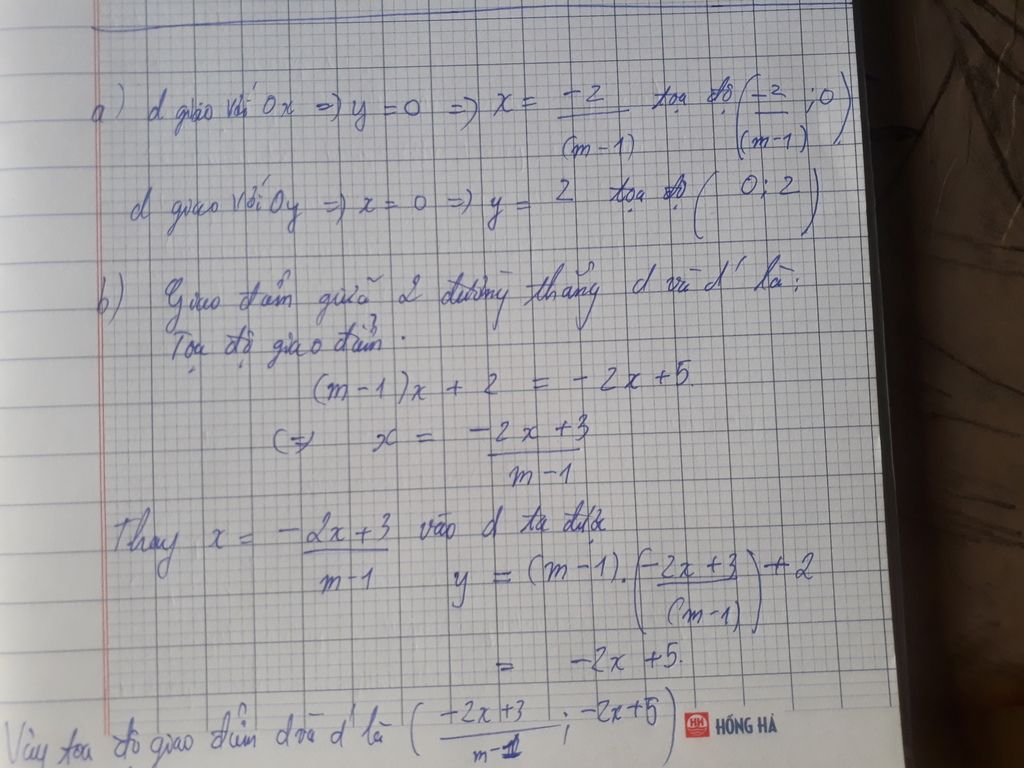 a) d giao với Ox => y = 0 => x = -2/(m-1) tọa độ (-2/(m-1) ; 0)
d giao với Oy => x = 0 => y = 2 tọa độ ( 0 ; 2 )
b) Giao điểm giữa 2 đường thẳng d và d' là :
Tọa độ giao điểm .
(m-1)x + 2 = -2x + 5
(=> x = (-2x + 3)/(m-1)
Thay x = (-2x + 3)/(m-1) vào d ta được
y = (m-1) . ((-2x + 3)/(m-1)) + 2
= -2x + 5.
Vậy tọa độ giao điểm d và d' là ((-2x+3)/(m-1) ; -2x+5)
HH HỒNG HÀ